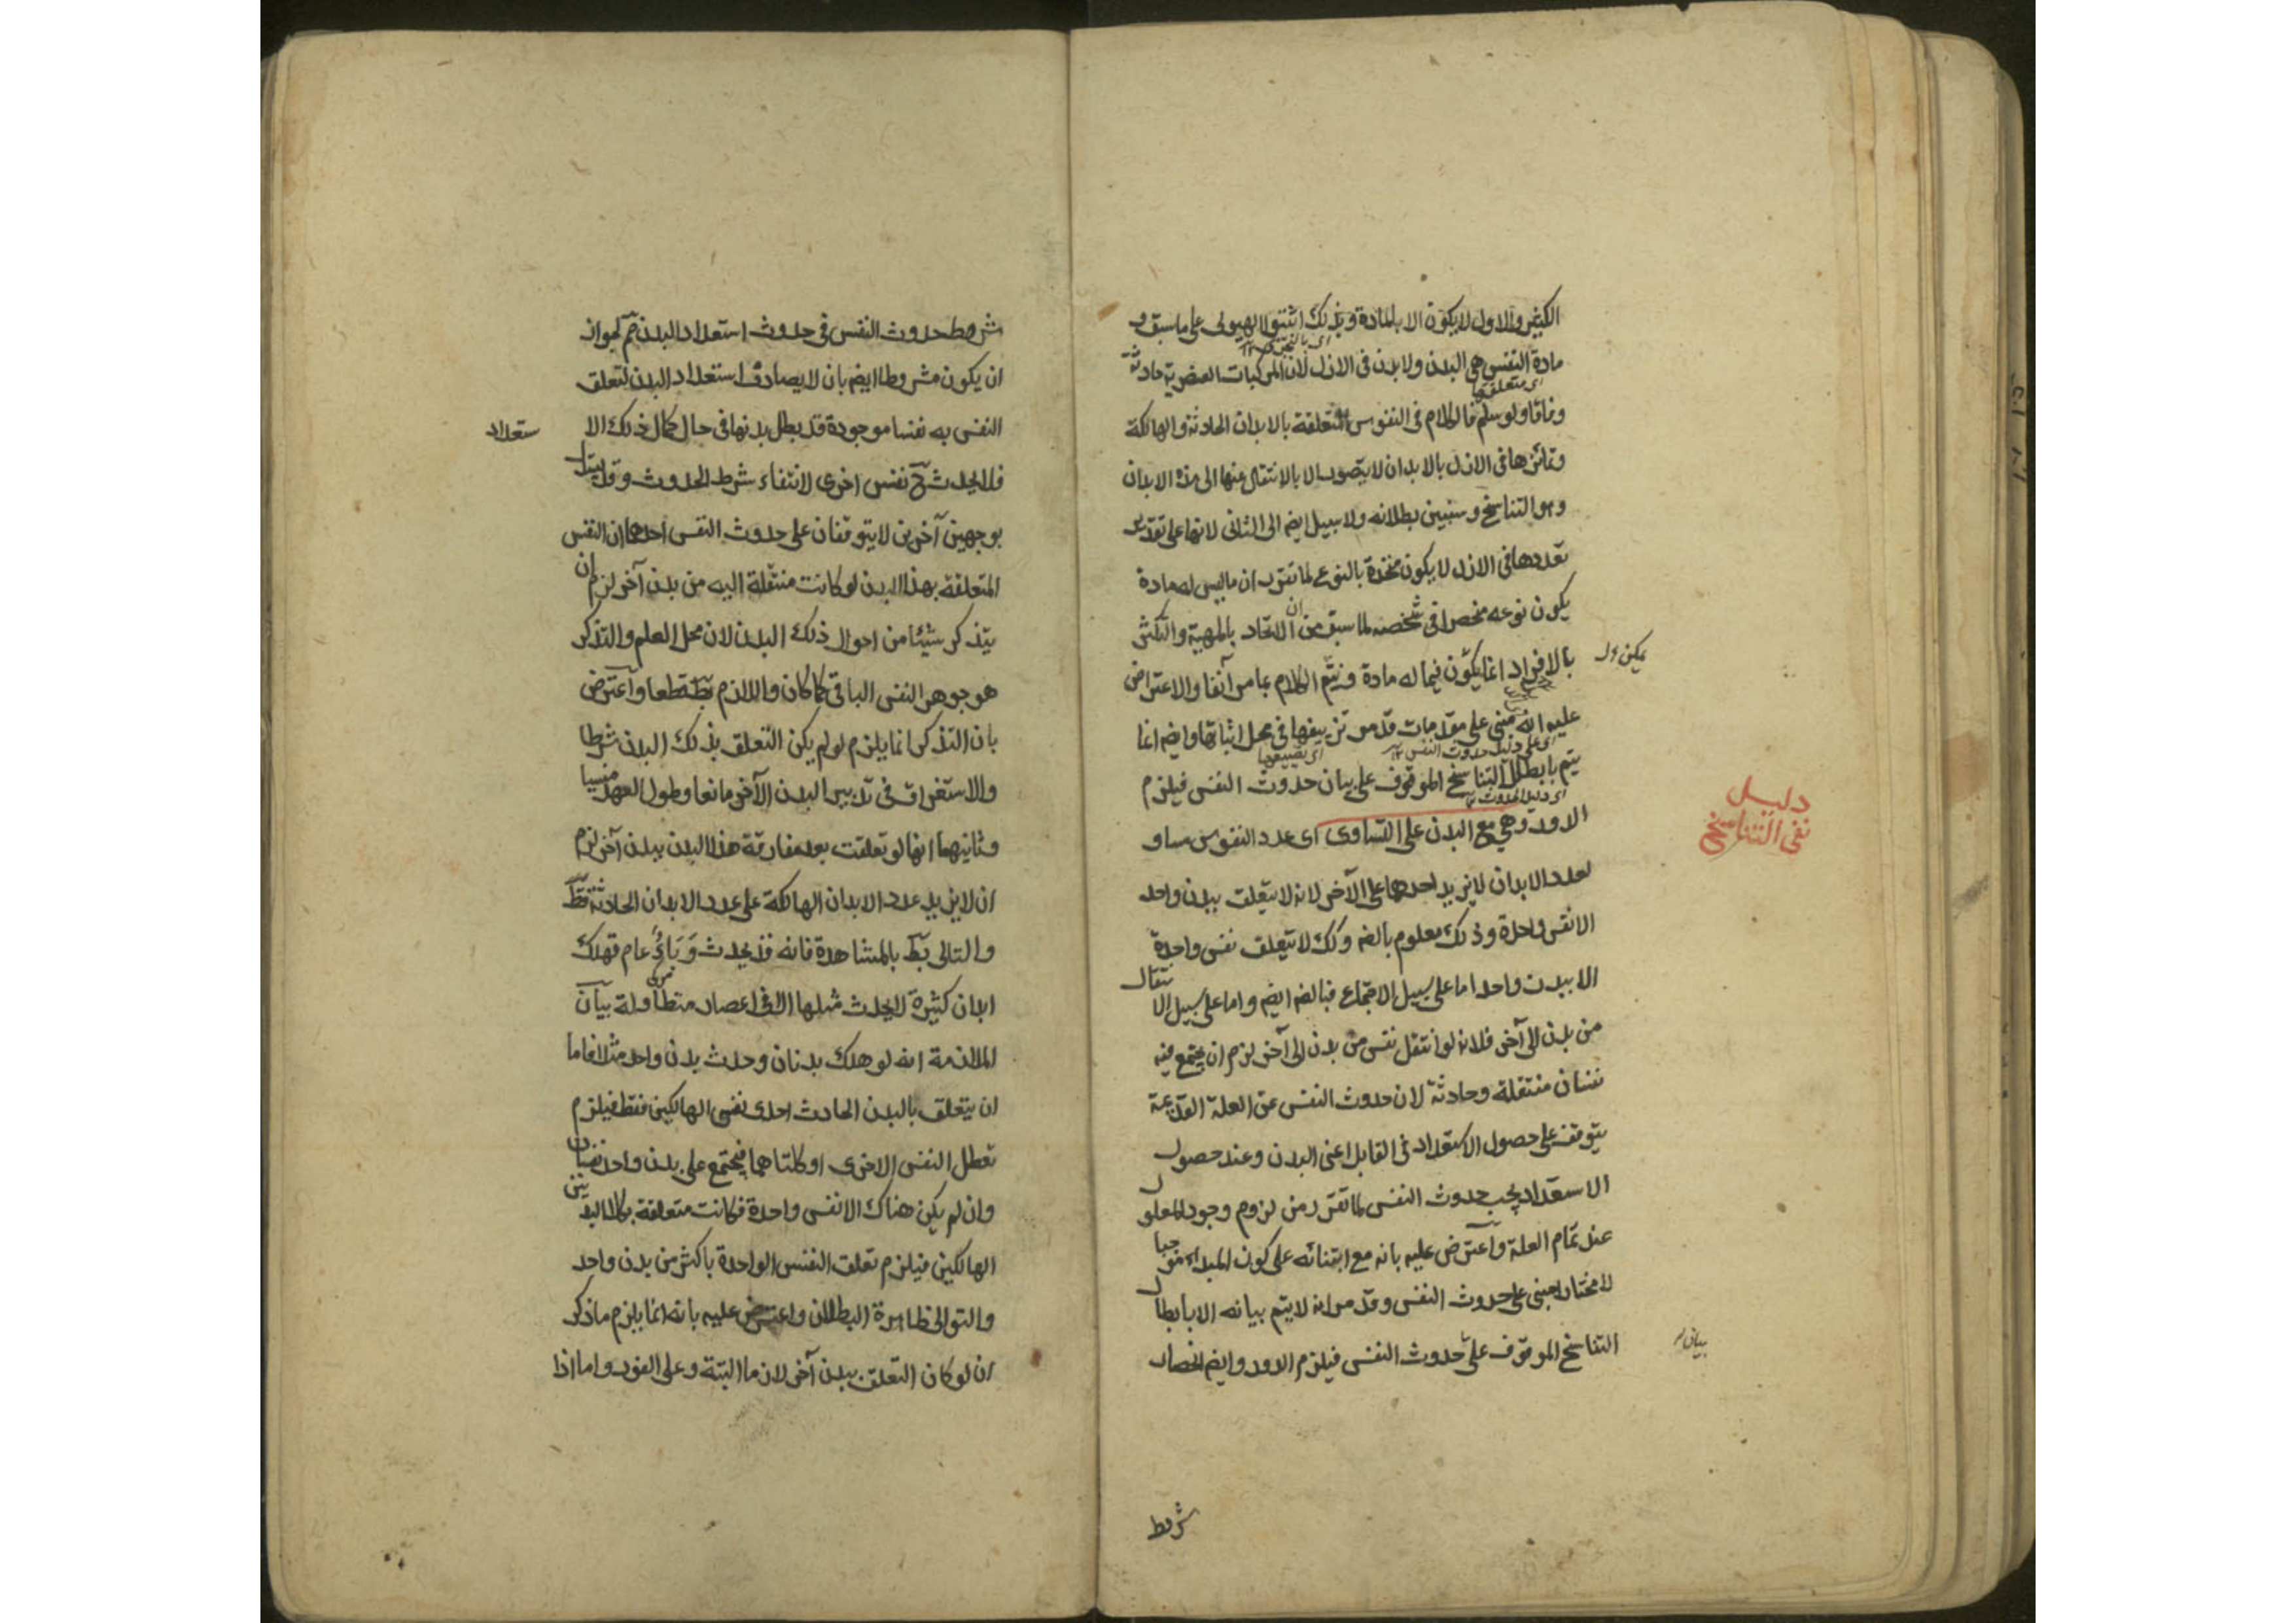 الكيف والاول لا يكون الا بالمادة وبذلك اثبتوا الهيولى على ما سبق و
اى بالتجزى
مادة النفس هى البدن ولا بدن فى الازل لان المركبات العنصرية حادثة
اى متعلقها
وفاقا ولو سلم فالكلام فى النفوس المتعلقة بالابدان الحادثة والهالكة
وتمائزها فى الازل بالابدان لا يتصور الا بالانتقال عنها الى هذه الابدان
وهو التناسخ وسنبين بطلانه ولا سبيل ايضم الى الثانى لانها على تقدير
تعددها فى الازل لا يكون متحدة بالنوع لما تقرر ان ما ليس له مادة
يكون نوعه منحصرا فى شخصه لما سبق من ان الاتحاد بالمهية والتكثر
بالافراد انما يكون فيما له مادة ويتم الكلام بما مر آنفا والاعتراض
يمكن
عليه انه مبنى على مقدمات قد مر تزييفها فى محل اثباتها وايضم انما
اى على دليل حدوث النفس
اى تضييعها
يتم بابطال التناسخ الموقوف على بيان حدوث النفس فيلزم
اى دليل الحدوث
الدور وهى مع البدن على التساوى اى عدد النفوس مساو
دليل
نفى التناسخ
لعدد الابدان لا يزيد احدهما على الآخر لانه لا يتعلق ببدن واحد
الا نفس واحدة وذلك معلوم بالضم وكك لا يتعلق نفس واحدة
الا ببدن واحد اما على سبيل الاجتماع فبالضم ايضم واما على سبيل الانتقال
من بدن الى آخر فلانه لو انتقل نفس من بدن الى آخر لزم ان يجتمع فيه
نفسان منتقلة وحادثة لان حدوث النفس عن العلة القديمة
يتوقف على حصول الاستعداد فى القابل اعنى البدن وعند حصول
الاستعداد يجب حدوث النفس لما تقرر من لزوم وجود المعلول
عند تمام العلة واعترض عليه بانه مع ابتنائه على كون المبداء موجبا
لا مختارا مبنى على حدوث النفس وقد مر انه لا يتم بيانه الا بابطال
التناسخ الموقوف على حدوث النفس فيلزم الدور وايضم انحصار
بيان
شرط
شرط حدوث النفس فى حدوث استعداد البدن مم لجواز
ان يكون مشروطا ايضم بان لا يصادف استعداد البدن لتعلق
النفس به نفسا موجودة قد بطل بدنها فى حال كمال ذلك الا
ستعداد
فلا يحدث ح نفس اخرى لانتفاء شرط الحدوث وقد يستدل
بوجهين آخرين لا يتوقفان على حدوث النفس احدهما ان النفس
المتعلقة بهذا البدن لو كانت منتقلة اليه من بدن آخر لزم ان
يتذكر شيئا من احوال ذلك البدن لان محل العلم والتذكر
هو جوهر النفس الباقى كما كان واللازم بط قطعا واعترض
بان التذكر انما يلزم لو لم يكن التعلق بذلك البدن شرطا
والاستغراق فى تدبير البدن الآخر مانعا وطول العهد منسيا
وثانيهما انها لو تعلقت بعد مفارقة هذا البدن ببدن آخر لزم
ان لا يزيد عدد الابدان الهالكة على عدد الابدان الحادثة قط
والتالى بط بالمشاهدة فانه قد يحدث وَبَاءٌ عام فهلك
ابدان كثيرة لا يحدث مثلها الا فى اعصار متطاولة بيان
الملازمة انه لو هلك بدنان وحدث بدن واحد مثلا فاما
ان يتعلق بالبدن الحادث احدى نفسى الهالكين فقط فيلزم
تعطل النفس الاخرى او كلتاهما فيجتمع على بدن واحد نفسان
وان لم يكن هناك الا نفس واحدة فكانت متعلقة بكلا البدنين
الهالكين فيلزم تعلق النفس الواحدة باكثر من بدن واحد
والتوالى ظاهرة البطلان واعترض عليه بانه انما يلزم ما ذكر
ان لو كان التعلق ببدن آخر لازما البتة وعلى الفور واما اذا